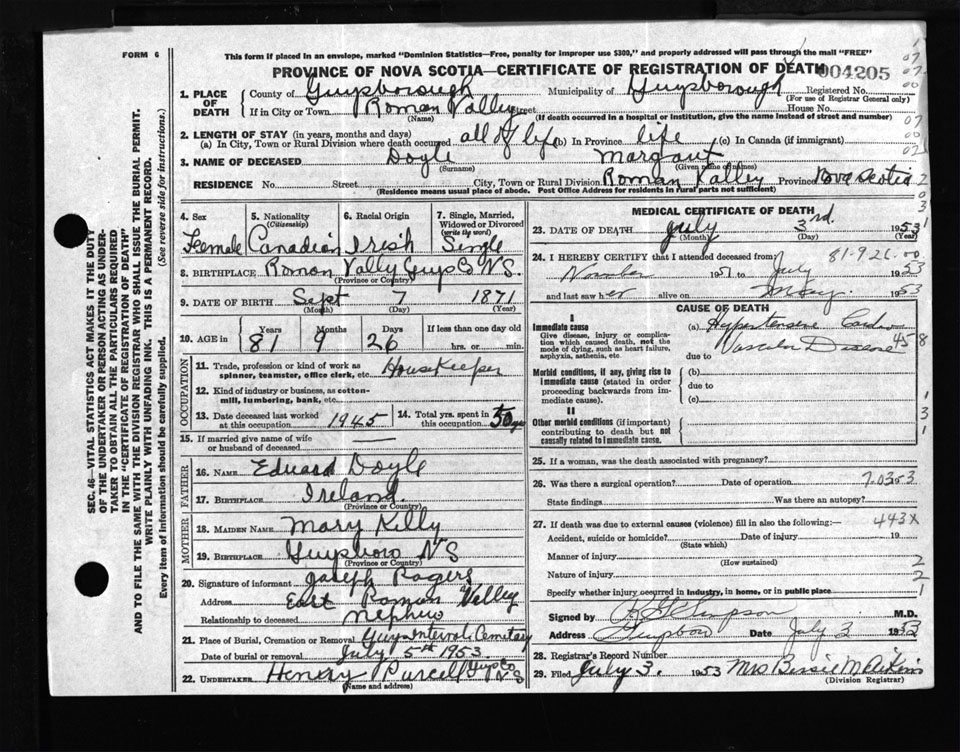 FORM 6
This form if placed in an envelope, marked "Dominion Statistics—Free, penalty for improper use $300," and properly addressed will pass through the mail "FREE"
PROVINCE OF NOVA SCOTIA—CERTIFICATE OF REGISTRATION OF DEATH 004205
1. PLACE OF DEATH County of Guysborough Municipality of Guysborough Registered No.
(For use of Registrar General only)
If in City or Town Roman Valley Street House No.
(Name) (If death occurred in a hospital or institution, give name instead of street and number)
2. LENGTH OF STAY (in years, months and days)
(a) In City, Town or Rural Division where death occurred all of life (b) In Province life (c) In Canada (if immigrant)
3. NAME OF DECEASED Doyle Margaret
(Surname) (Given name or names)
RESIDENCE No. Street City, Town or Rural Division Roman Valley Province Nova Scotia
(Residence means usual place of abode. Post Office Address for residents in rural parts not sufficient)
4. Sex Female
5. Nationality (Citizenship) Canadian
6. Racial Origin Irish
7. Single, Married, Widowed or Divorced (write the word) Single
8. BIRTHPLACE Roman Vally Guys Co NS.
(Province or Country)
9. DATE OF BIRTH Sept 7 1871
(Month) (Day) (Year)
10. AGE in Years 81 Months 9 Days 26 If less than one day old
hrs. or min.
OCCUPATION
11. Trade, profession or kind of work as spinner, teamster, office clerk, etc. HouseKeeper
12. Kind of industry or business, as cotton-mill, lumbering, bank, etc.
13. Date deceased last worked at this occupation 1945
14. Total yrs. spent in this occupation 50 yrs
15. If married give name of wife or husband of deceased
FATHER
16. NAME Eduard Doyle
17. BIRTHPLACE Ireland.
(Province or Country)
MOTHER
18. MAIDEN NAME Mary Killy
19. BIRTHPLACE Guysboro NS
(Province or Country)
20. Signature of informant Joseph Rogers
Address East Roman Valley
Relationship to deceased nephew
21. Place of Burial, Cremation or Removal Guys Intervale Cemetary
Date of burial or removal July 5th 1953
22. UNDERTAKER Henery Purcell Guys Co NS
(Name and address)
MEDICAL CERTIFICATE OF DEATH
23. DATE OF DEATH July 3rd 1953
(Month) (Day) (Year)
81-9-26
24. I HEREBY CERTIFY that I attended deceased from
1951 to July 1953
and last saw her alive on May 1953
CAUSE OF DEATH
I
Immediate cause
Give disease, injury or complication which caused death, not the mode of dying, such as heart failure, asphyxia, asthenia, etc.
(a) Hypertensive Cardio
Vascular Disease 458
due to
Morbid conditions, if any, giving rise to immediate cause (stated in order proceeding backwards from immediate cause).
(b)
due to
(c)
II
Other morbid conditions (if important) contributing to death but not causally related to immediate cause.
25. If a woman, was the death associated with pregnancy?
26. Was there a surgical operation? Date of operation
State findings Was there an autopsy?
27. If death was due to external causes (violence) fill in also the following:— 443X
Accident, suicide or homicide? Date of injury 19
(State which)
Manner of injury
(How sustained)
Nature of injury
Specify whether injury occurred in industry, in home, or in public place
Signed by M.D.
Address Guysboro Date July 3 1953
28. Registrar's Record Number
29. Filed July 3. 1953 Mrs Bessie M. Aikins
(Division Registrar)
SEC. 46—VITAL STATISTICS ACT MAKES IT THE DUTY
OF THE UNDERTAKER OR PERSON ACTING AS UNDERTAKER TO OBTAIN ALL THE PARTICULARS REQUIRED
IN THE "CERTIFICATE OF REGISTRATION OF DEATH"
AND TO FILE THE SAME WITH THE DIVISION REGISTRAR WHO SHALL ISSUE THE BURIAL PERMIT.
WRITE PLAINLY WITH UNFADING INK. THIS IS A PERMANENT RECORD.
Every item of information should be carefully supplied. (See reverse side for instructions.)